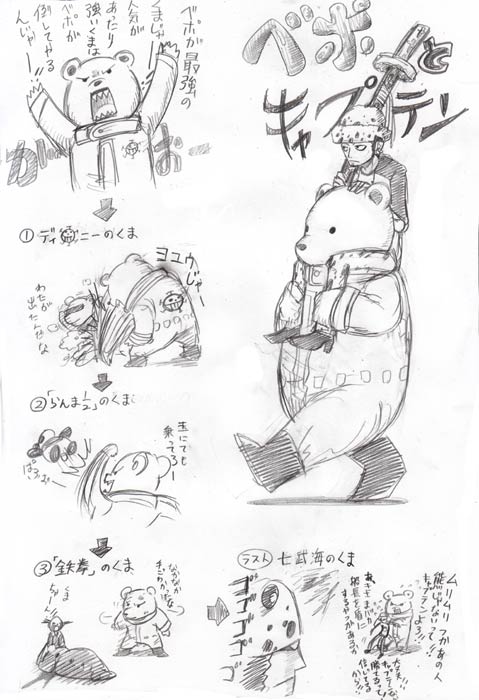 ベポと
キャプテン
ベポが最強の
くまじゃー
人気が
あたり
強いくまは
ベポが
倒してやる
んじゃー!!
がおー
①ディ ニーのくま
ヨユウ
じゃー
わたが
出たんだな
②「らんま1/2」のくま
玉にでも
乗ってろー
ぱふぉー
③「鉄拳」のくま
くまー
なかなか
てごわかったな
ラスト 七武海のくま
ゴゴゴゴ
ムリムリつかあの人
熊じゃないって!!
キャプテンよぉ!!
あきらめんな
船長を盾に
するやつがあるか
大丈夫
キャプテンなら
勝てるって
信じてる
から!!